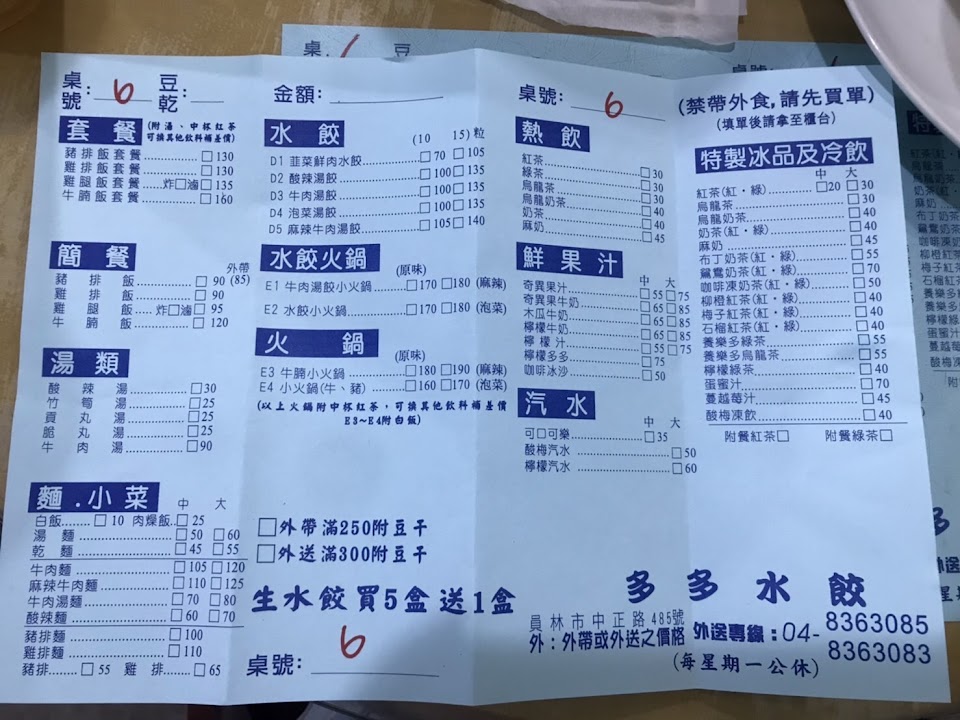 桌號: 6 豆乾:
套餐 (附湯、中杯紅茶可換其他飲料補差價)
豬排飯套餐 □130
雞排飯套餐 □130
雞腿飯套餐 炸□滷□135
牛腩飯套餐 □160
簡餐 外帶
豬排飯 □90 (85)
雞排飯 □90
雞腿飯 炸□滷□95
牛腩飯 □120
湯類
酸辣湯 □30
竹筍湯 □25
貢丸湯 □25
脆丸湯 □25
牛肉湯 □90
麵.小菜 中 大
白飯 □10 肉燥飯 □25
湯麵 □50 □60
乾麵 □45 □55
牛肉麵 □105 □120
麻辣牛肉麵 □110 □125
牛肉湯麵 □70 □80
酸辣麵 □60 □70
豬排麵 □100
雞排麵 □110
豬排 □55 雞排 □65
金額:
水餃 (10 15)粒
D1 韮菜鮮肉水餃 □70 □105
D2 酸辣湯餃 □100 □135
D3 牛肉湯餃 □100 □135
D4 泡菜湯餃 □100 □135
D5 麻辣牛肉湯餃 □105 □140
水餃火鍋 (原味)
E1 牛肉湯餃小火鍋 □170 □180 (麻辣)
E2 水餃小火鍋 □170 □180 (泡菜)
火鍋 (原味)
E3 牛腩小火鍋 □180 □190 (麻辣)
E4 小火鍋(牛、豬) □160 □170 (泡菜)
(以上火鍋附中杯紅茶,可換其他飲料補差價
E3~E4附白飯)
□外帶滿250附豆干
□外送滿300附豆干
生水餃買5盒送1盒
桌號: 6
桌號: 6
熱飲
紅茶
綠茶 □30
烏龍茶 □30
烏龍奶茶 □40
奶茶 □40
麻奶 □45
鮮果汁 中 大
奇異果汁 □55 □75
奇異果牛奶 □65 □85
木瓜牛奶 □65 □85
檸檬牛奶 □65 □85
檸檬汁 □55 □75
檸檬多多 □75
咖啡冰沙 □50
汽水 中 大
可□可樂 □35
酸梅汽水 □50
檸檬汽水 □60
(禁帶外食,請先買單)
(填單後請拿至櫃台)
特製冰品及冷飲
中 大
紅茶(紅・綠) □20 □30
烏龍茶 □30
烏龍奶茶 □40
奶茶(紅・綠) □40
麻奶 □45
布丁奶茶(紅・綠) □55
鴛鴦奶茶(紅・綠) □70
咖啡凍奶茶(紅・綠) □50
柳橙紅茶(紅・綠) □40
梅子紅茶(紅・綠) □40
石榴紅茶(紅・綠) □40
養樂多綠茶 □55
養樂多烏龍茶 □55
檸檬綠茶 □40
蛋蜜汁 □70
蔓越莓汁 □45
酸梅凍飲 □40
附餐紅茶□ 附餐綠茶□
多多水餃
員林市中正路485號
外:外帶或外送之價格
外送專線:04-8363085
8363083
(每星期一公休)